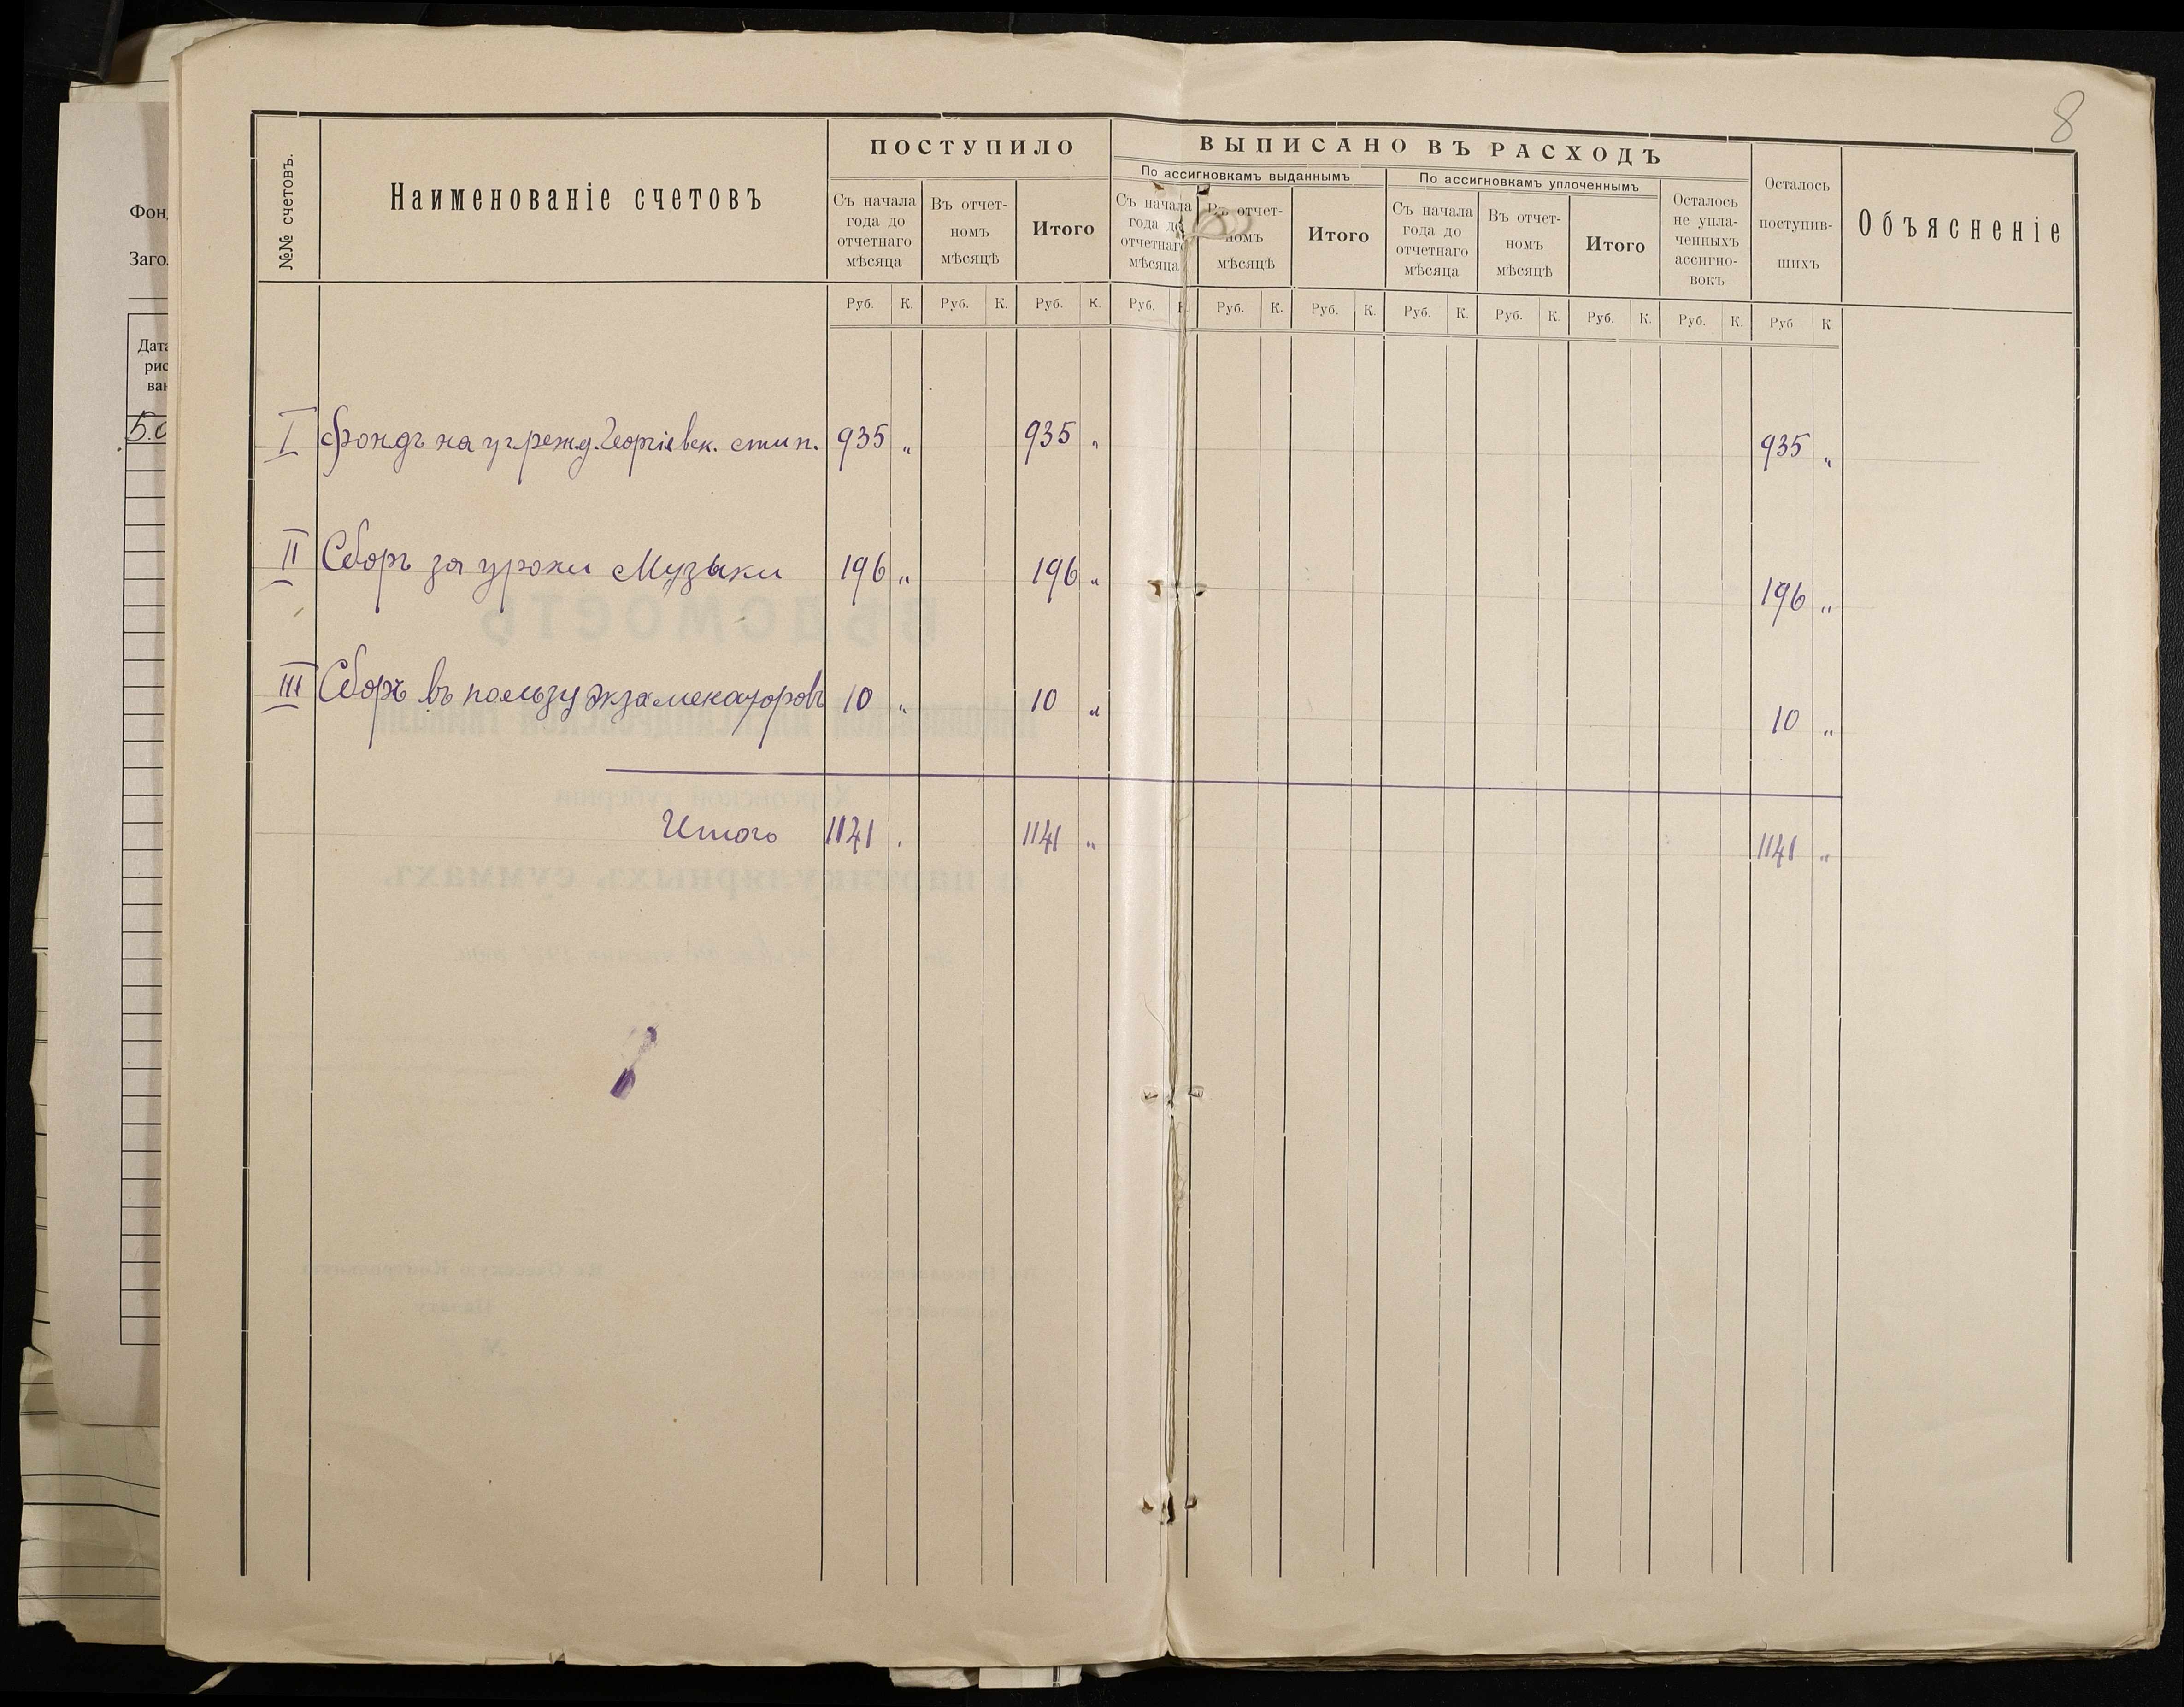 8
Фон
Заго
Дата
рис
ван
5.0
№№ счетовъ.
Наименованіе счетовъ
ПОСТУПИЛО
Съ начала
года до
отчетнаго
мѣсяца
Въ отчет-
номъ
мѣсяцѣ
Итого
ВЫПИСАНО ВЪ РАСХОДЪ
По ассигновкамъ выданнымъ
Съ начала
года до
отчетнаго
мѣсяца
Въ отчет-
номъ
мѣсяцѣ
Итого
По ассигновкамъ уплоченнымъ
Съ начала
года до
отчетнаго
мѣсяца
Въ отчет-
номъ
мѣсяцѣ
Итого
Осталось
не упла-
ченныхъ
ассигно-
вокъ
Осталось
поступив-
шихъ
Объясненіе
Руб. К. Руб. К. Руб. К. Руб. К. Руб. К. Руб. К. Руб. К. Руб. К. Руб. К. Руб. К. Руб К
I Фондъ на учрежд. Георгіевск. стип. 935 „ 935 „ 935 „
II Сборъ за уроки Музыки 196 „ 196 „ 196 „
III Сборъ въ пользу экзаменаторовъ 10 „ 10 „ 10 „
Итого 1141 „ 1141 „ 1141 „
ВѢДОМОСТЬ
Херсонской губерніи
о партикулярныхъ суммахъ